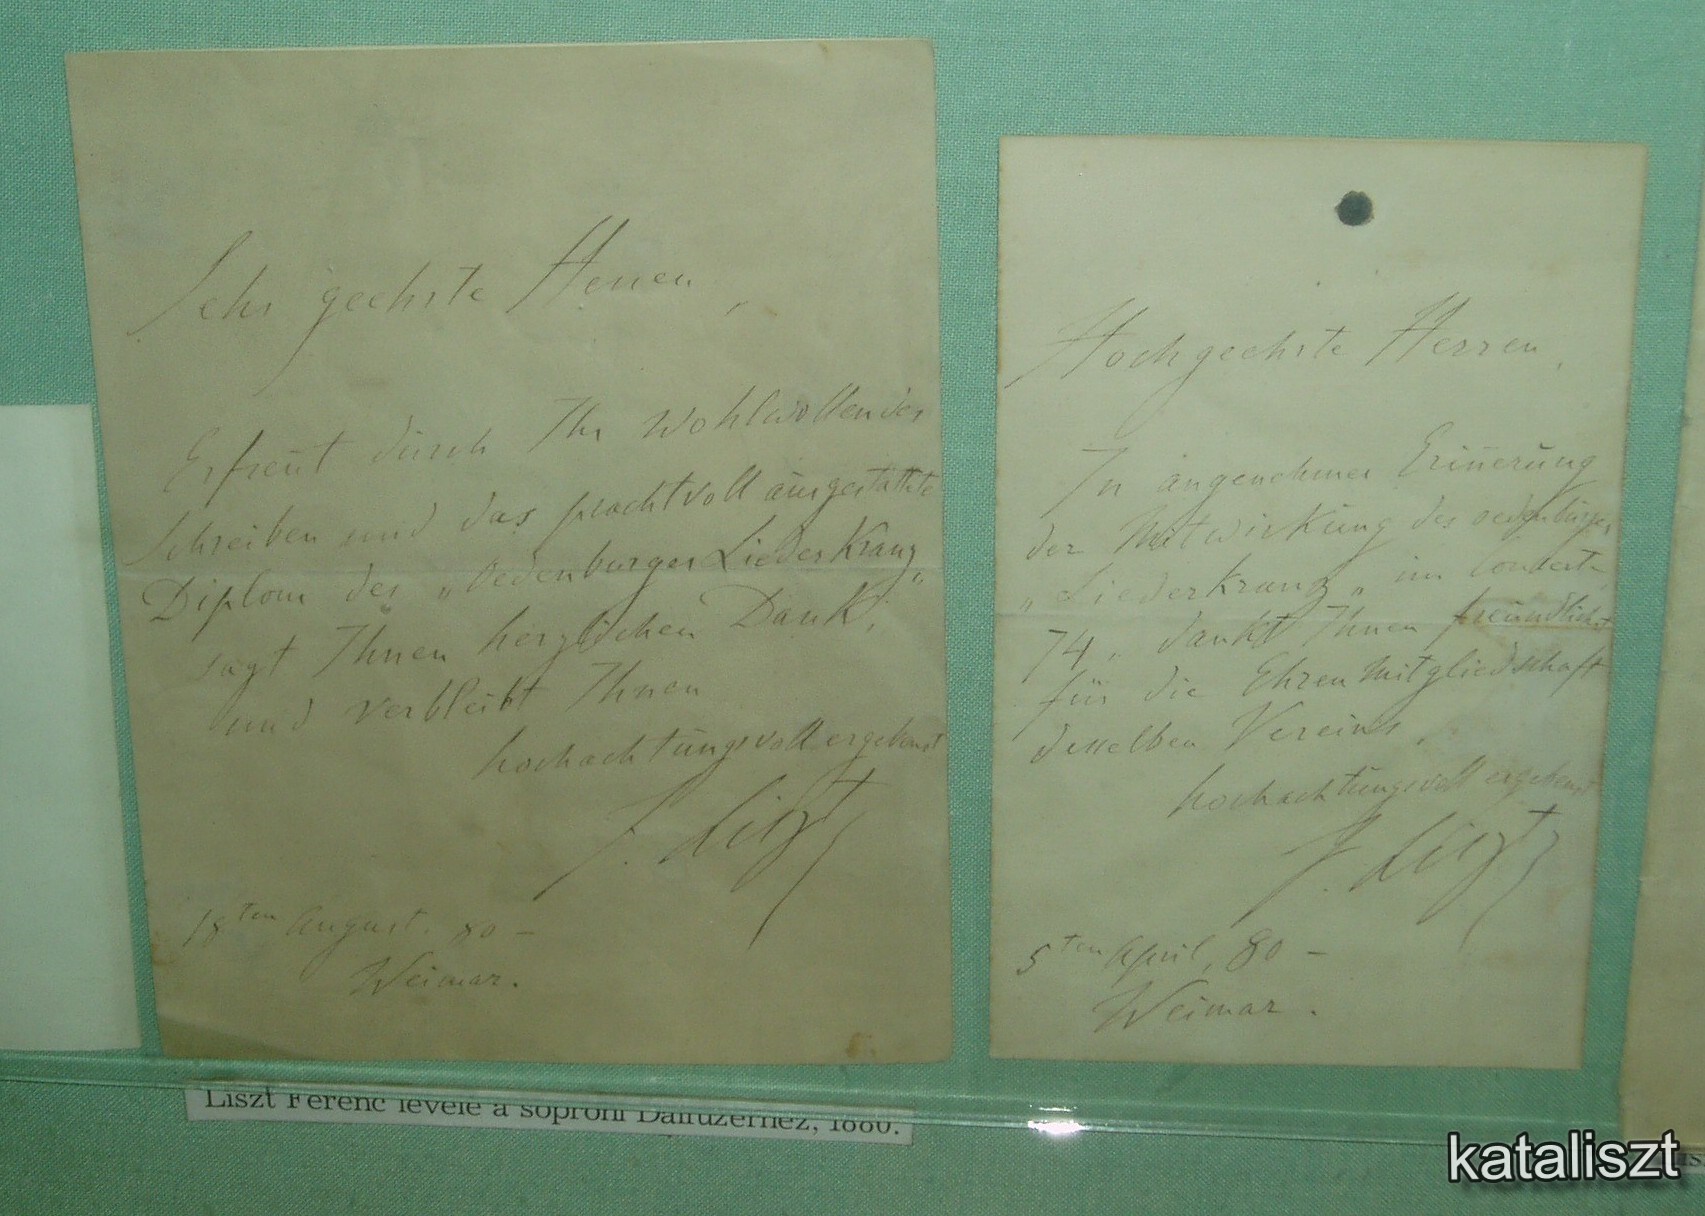 Sehr geehrte Herren,
Erfreut durch Ihr Wohlwollendes
Schreiben und das prachtvoll ausgestattete
Diplom des „Oedenburger Liederkranz„
sagt Ihnen herzlichen Dank,
und verbleibt Ihnen
hochachtungsvoll ergebenst
F. Liszt
18ten August. 80 –
Weimar.
Hochgeehrte Herren,
In angenehmer Erinnerung
der Mitwirkung des oedenburger
„Liederkranz„ im Concert
74„ dankt Ihnen freundlichst
für die Ehrenmitgliedschaft
desselben Vereins,
hochachtungsvoll ergebenst
F. Liszt
5ten April, 80 –
Weimar.
Liszt Ferenc levele a soproni Dalfüzérhez, 1880.
kataliszt